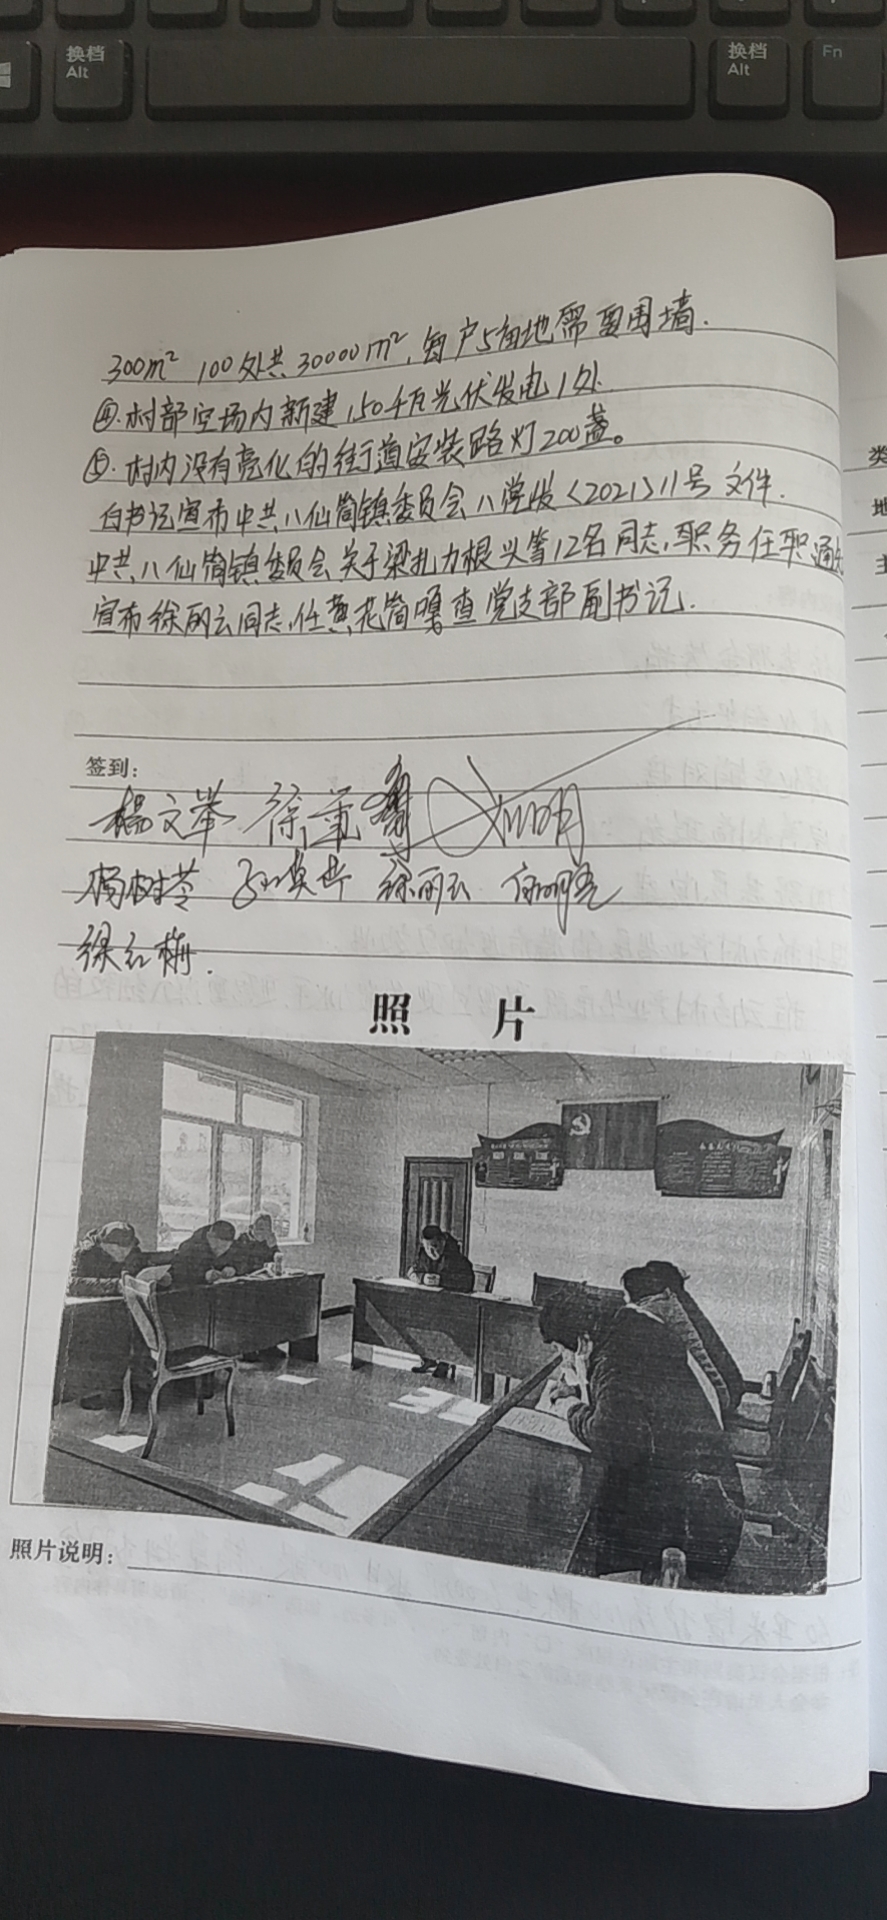 换档
Alt
换档
Alt
Fn
300m² 100处共30000m²,每户5亩地需要围墙.
④.村部空场内新建150千瓦光伏发电1处.
⑤.村内没有亮化的街道安装路灯200盏。
白书记宣布中共八仙筒镇委员会八党发<2021>11号文件.
中共八仙筒镇委员会关于梁扎力根义等12名同志,职务任职通
宣布徐丽云同志,任黄花筒嘎查党支部副书记.
签到:
杨文举 徐
杨树苓 徐丽云
徐红梅.
照 片
照片说明:
类
地